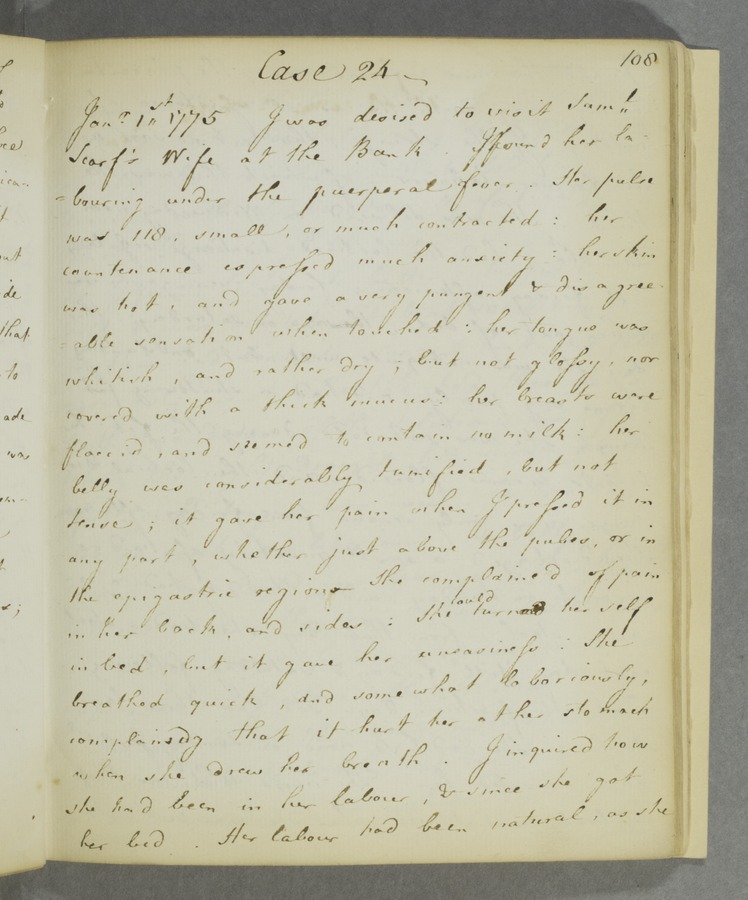 108
Case 24
Janr. 1st 1775 I was desired to visit Samll
Scarf's Wife at the Bank. I found her la-
=bouring under the puerperal fever. Her pulse
was 118, small, or much contracted: her
countenance expressed much anxiety: her skin
was hot, and gave a very pungent & disagree-
=able sensation when touched: her tongue was
whitish, and rather dry; but not glossy, nor
covered with a thick mucus: her breasts were
flaccid, and seemed to contain no milk: her
belly was considerably tumified, but not
tense; it gave her pain when I pressed it in
any part, whether just above the pubes, or in
the epigastric region She complained of pain
in her back, and sides: She could turn her self
in bed, but it gave her uneasiness: She
breathed quick, and somewhat laboriously,
complaining that it hurt her at her stomach
when she drew her breath. I inquired how
she had been in her labour, & since she got
her bed. Her labour had been natural, as she